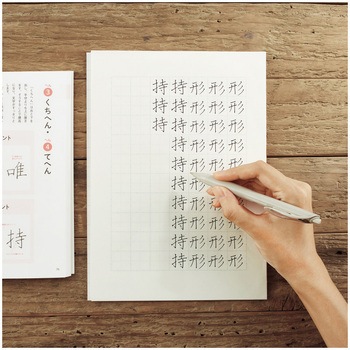 形形形形形形形形形形
形形形形形形形形形形
形形形形形形形形形形
持持持持持持持持持持
持持持
3 くちへん・
4 てへん
ント
唯
持